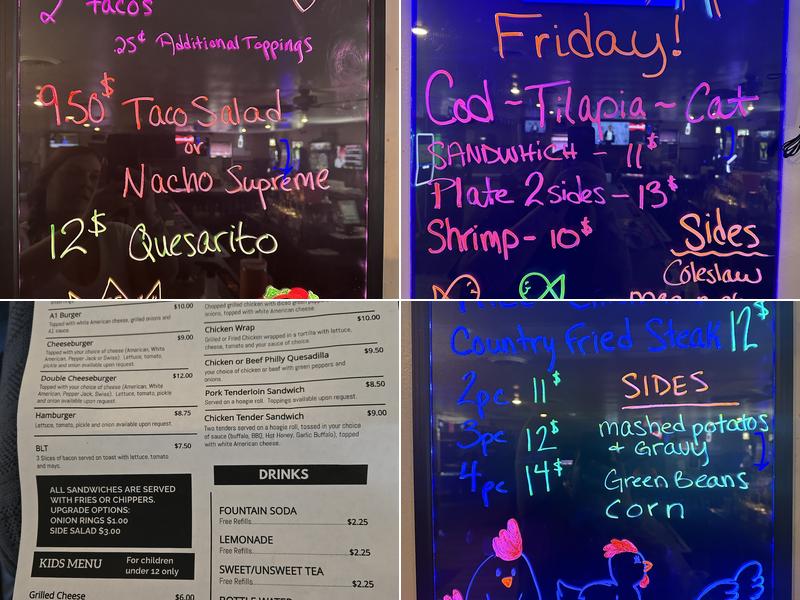 2 Tacos
.25¢ Additional Toppings
9.50$ Taco Salad
or
Nacho Supreme
12$ Quesarito
Friday!
Cod ~ Tilapia ~ Cat
SANDWHICH - 11$
Plate 2 sides - 13$
Shrimp - 10$
Sides
Coleslaw
$10.00
A1 Burger
Topped with white American cheese, grilled onions and
A1 sauce.
$9.00
Cheeseburger
Topped with your choice of cheese (American, White
American, Pepper Jack or Swiss). Lettuce, tomato,
pickle and onion available upon request.
Double Cheeseburger $12.00
Topped with your choice of cheese (American, White
American, Pepper Jack, Swiss). Lettuce, tomato, pickle
and onion available upon request.
Hamburger $8.75
Lettuce, tomato, pickle and onion available upon request.
BLT $7.50
3 Slices of bacon served on toast with lettuce, tomato
and mayo.
ALL SANDWICHES ARE SERVED
WITH FRIES OR CHIPPERS.
UPGRADE OPTIONS:
ONION RINGS $1.00
SIDE SALAD $3.00
KIDS MENU For children
under 12 only
Grilled Cheese $6.00
Chopped grilled chicken with diced green peppers,
onions, topped with white American cheese.
Chicken Wrap $10.00
Grilled or Fried Chicken wrapped in a tortilla with lettuce,
cheese, tomato and your sauce of choice.
Chicken or Beef Philly Quesadilla $9.50
your choice of chicken or beef with green peppers and
onions.
Pork Tenderloin Sandwich $8.50
Served on a hoagie roll. Toppings available upon request.
Chicken Tender Sandwich $9.00
Two tenders served on a hoagie roll, tossed in your choice
of sauce (buffalo, BBQ, Hot Honey, Garlic Buffalo), topped
with white American cheese.
DRINKS
FOUNTAIN SODA
Free Refills $2.25
LEMONADE
Free Refills $2.25
SWEET/UNSWEET TEA
Free Refills $2.25
Country Fried Steak 12$
2pc 11$
3pc 12$
4pc 14$
SIDES
mashed potatos
& Gravy
Green Beans
Corn